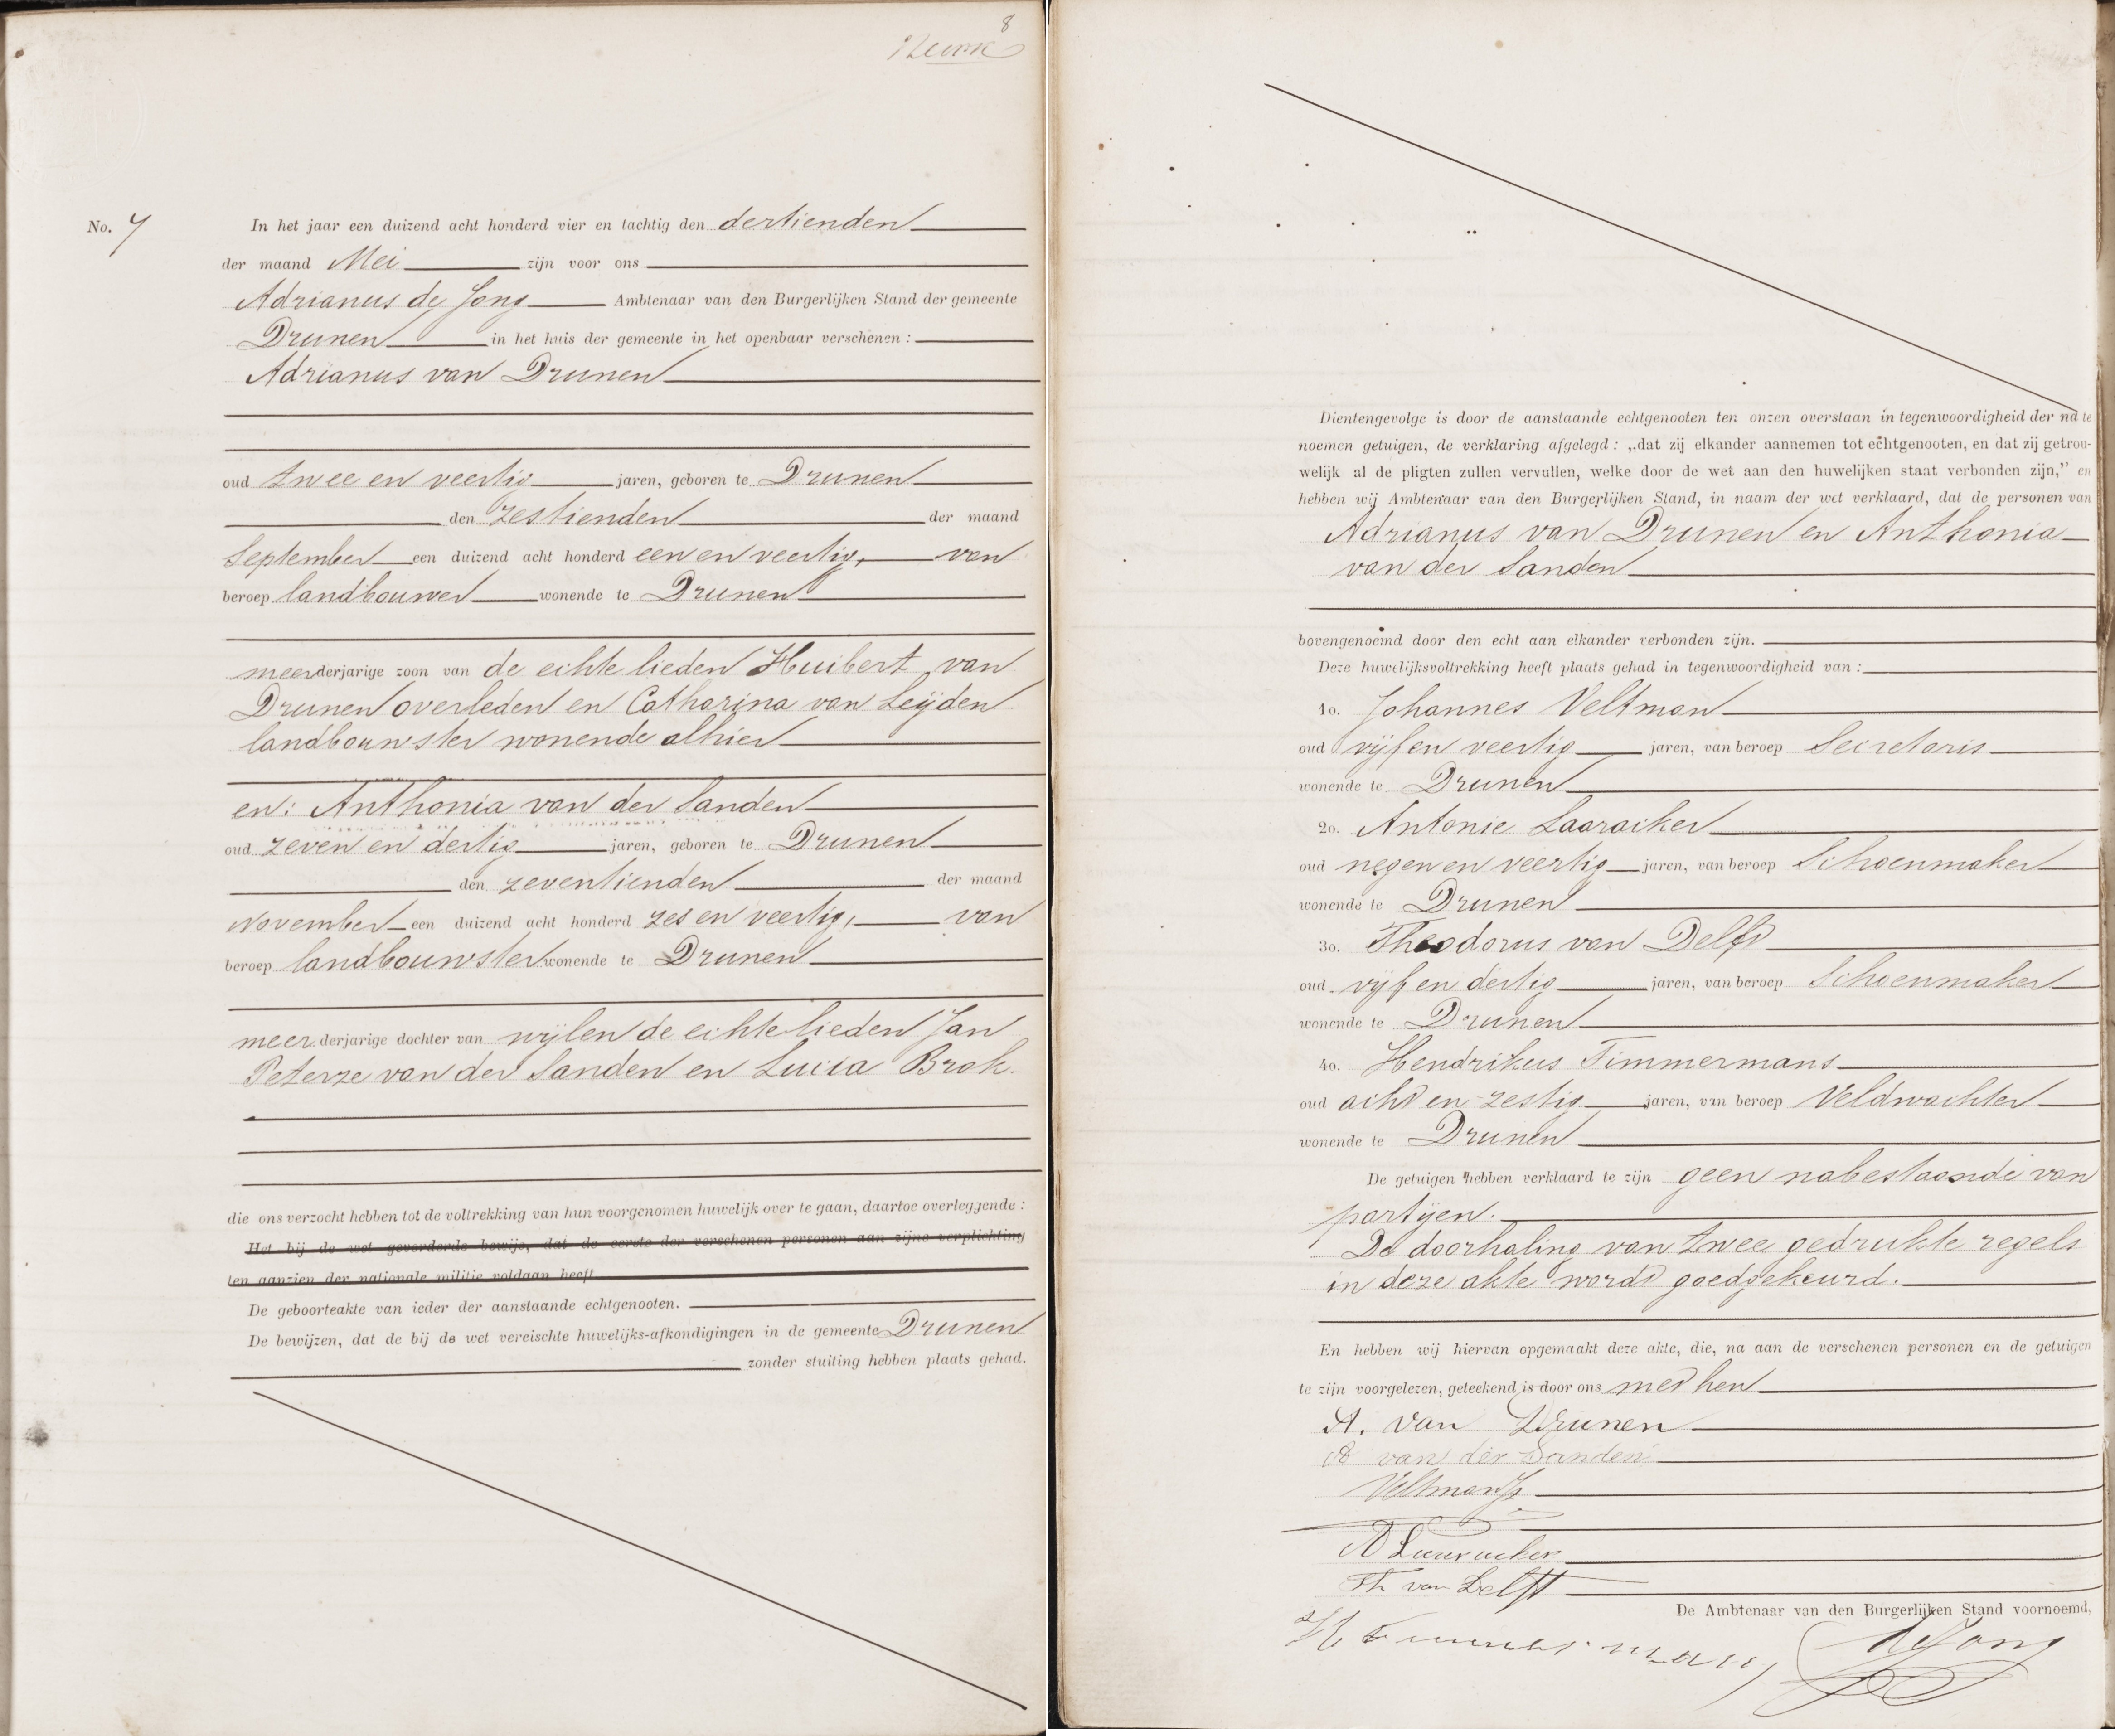 8
No. 7
In het jaar een duizend acht honderd vier en tachtig den dertienden
der maand Mei zijn voor ons
Adrianus de Jong Ambtenaar van den Burgerlijken Stand der gemeente
Drunen in het huis der gemeente in het openbaar verschenen :
Adrianus van Drunen
oud twee en veertig jaren, geboren te Drunen
den zestienden der maand
September een duizend acht honderd een en veertig, van
beroep landbouwer wonende te Drunen
meerderjarige zoon van de echte lieden Huibert van
Drunen overleden en Catharina van Leijden
landbouwster wonende alhier
en: Anthonia van der Sanden
oud zeven en dertig jaren, geboren te Drunen
den zeventienden der maand
November een duizend acht honderd zes en veertig, van
beroep landbouwster wonende te Drunen
meerderjarige dochter van wijlen de echte lieden Jan
Peterze van der Sanden en Lucia Brok.
die ons verzocht hebben tot de voltrekking van hun voorgenomen huwelijk over te gaan, daartoe overleggende :
Het bij de wet gevorderde bewijs, dat de eerste der verschenen personen aan zijne verplichting
ten aanzien der nationale militie voldaan heeft
De geboorteakte van ieder der aanstaande echtgenooten.
De bewijzen, dat de bij de wet vereischte huwelijks-afkondigingen in de gemeente Drunen
zonder stuiting hebben plaats gehad.
Dientengevolge is door de aanstaande echtgenooten ten onzen overstaan in tegenwoordigheid der na te
noemen getuigen, de verklaring afgelegd : „dat zij elkander aannemen tot echtgenooten, en dat zij getrou-
welijk al de pligten zullen vervullen, welke door de wet aan den huwelijken staat verbonden zijn,” en
hebben wij Ambtenaar van den Burgerlijken Stand, in naam der wet verklaard, dat de personen van
Adrianus van Drunen en Anthonia
van der Sanden
bovengenoemd door den echt aan elkander verbonden zijn.
Deze huwelijksvoltrekking heeft plaats gehad in tegenwoordigheid van :
1o. Johannes Veltman
oud vijf en veertig jaren, van beroep Secretaris
wonende te Drunen
2o. Antonie Laaracker
oud negen en veertig jaren, van beroep Schoenmaker
wonende te Drunen
3o. Theodorus van Delft
oud vijf en dertig jaren, van beroep Schoenmaker
wonende te Drunen
4o. Hendrikus Timmermans
oud acht en zestig jaren, van beroep Veldwachter
wonende te Drunen
De getuigen hebben verklaard te zijn geen nabestaande van
partijen.
De doorhaling van twee gedrukte regels
in deze akte wordt goedgekeurd.
En hebben wij hiervan opgemaakt deze akte, die, na aan de verschenen personen en de getuigen
te zijn voorgelezen, geteekend is door ons met hen
A. van Drunen
A van der Sanden
Veltman
A Laaracker
Th van Delft
De Ambtenaar van den Burgerlijken Stand voornoemd,
H Timmermans
de Jong